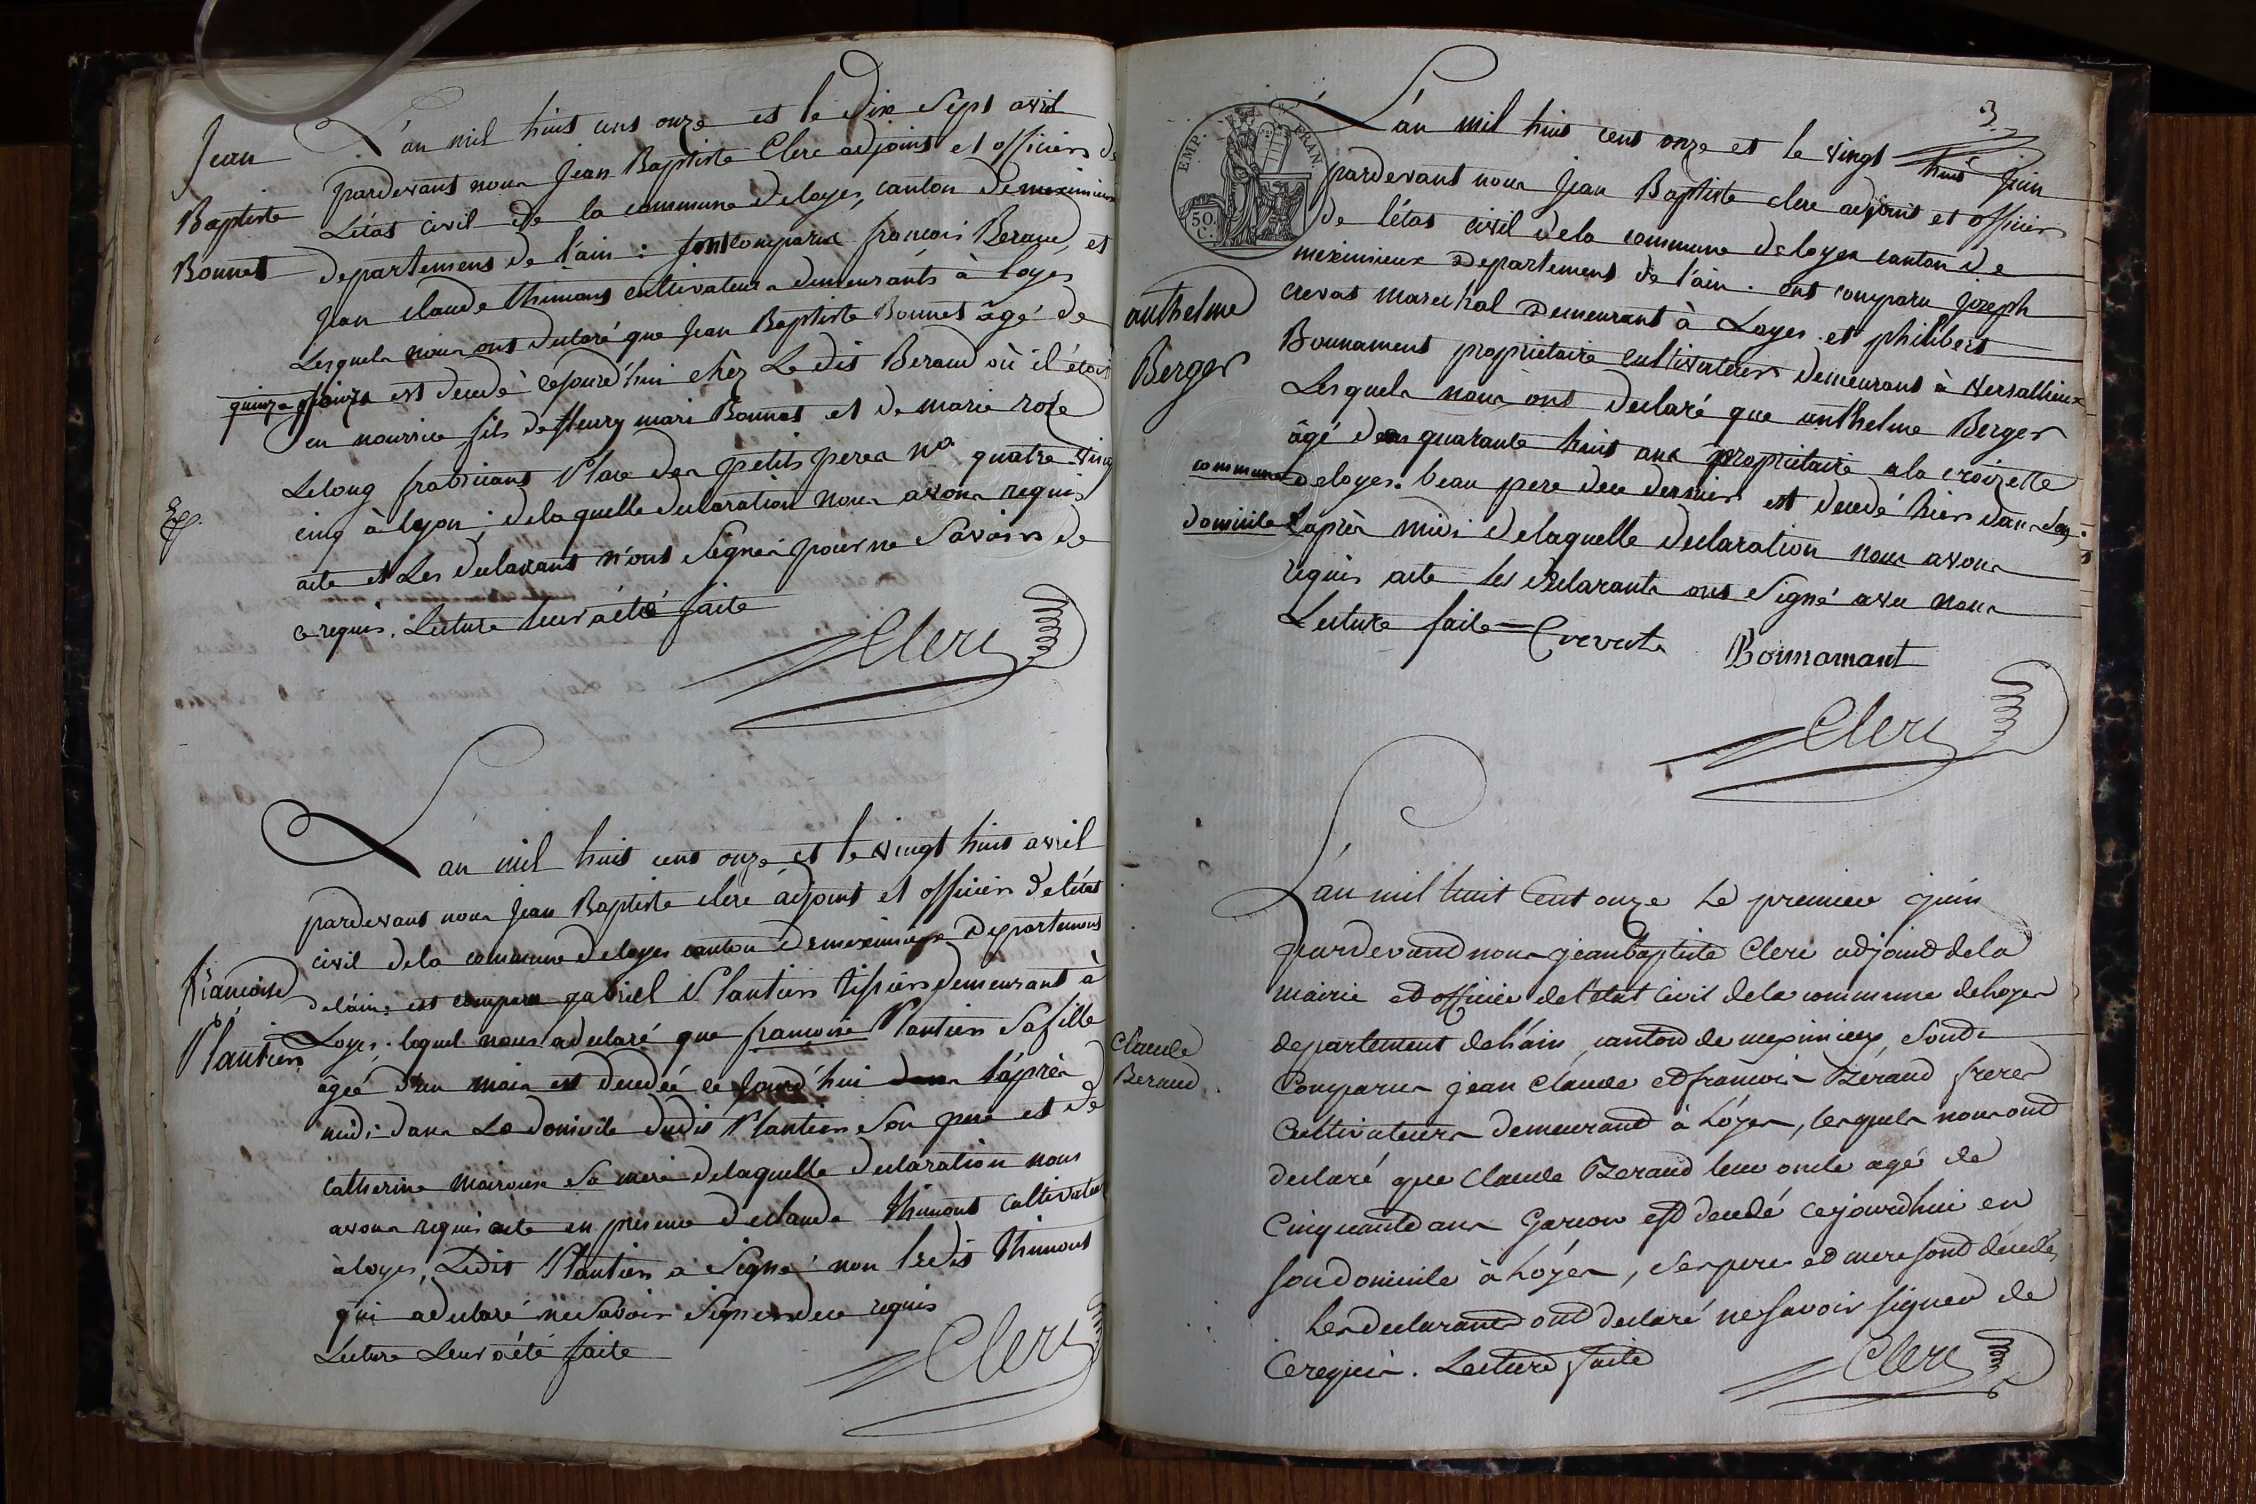 Jean
Baptiste
Bonnet
L'an mil huit cens onze et le dix sept avril
pardevant nous Jean Baptiste Clerc adjoint et officier de
L'état civil de la commune de loyes, canton de meximieux
departement de l'ain : sont comparu francois Beraud et
Jean claude thimont cultivateurs demeurants à loyes
Lesquels nous ont declaré que Jean Baptiste Bonnet âgé de
quinze jours est decedé cejourd'hui chez Le dit Beraud où il étoit
en nourrice fils de fleury mari Bonnet et de marie roze
Lelong fabricant Place des petits peres n° quatre vingt
cinq à lyon ; de laquelle declaration nous avons requis
acte et Les declarant n'ont signés pour ne Savoir de
ce requis. Lecture leur a été faite
Clerc
L'an mil huit cens onze et le vingt huit avril
pardevant nous Jean Baptiste clerc adjoint et officier de l'état
civil de la commune de loyes canton de meximieux Departement
de l'ain : est comparu gabriel Plantier tissier demeurant à
francoise
Plantier
Loyes. lequel nous a declaré que francoise Plantier Sa fille
âgée d'un mois est decedée ce jourd'hui l'après
midi dans Le domicile dudit Plantier Son pere et de
Catherine Sa mere de laquelle declaration nous
avons requis acte en présence de claude thimont cultivateur
à loyes, Ledit Plantier a Signé non ledit thimont
qui a declaré ne Savoir Signer de ce requis
Lecture Leur a été faite
Clerc
3
EMP. FRAN.
50 C.
L'an mil huit cens onze et le vingt huit Juin
pardevant nous Jean Baptiste clerc adjoint et officier
de l'état civil de la commune de loyes canton de
meximieux Departement de l'ain. ont comparu joseph
anthelme
Berger
crevat marechal Demeurant à Loyes et philibert
Bonnament propriétaire cultivateur demeurant à versallieux
Lesquels nous ont declaré que anthelme Berger
âgé de quarante huit ans propriétaire a la croizette
commune de loyes. beau pere de ce dernier est decedé hier dans son
domicile L'après midi de laquelle declaration nous avons
requis acte les declarants ont Signé avec nous
Lecture faite = Crevat Bonnamant
Clerc
L'an mil huit Cent onze Le premier juin
pardevant nous jean baptiste Clerc adjoint de la
mairie et officier de l'état Civil de la commune de Loyes
departement de L'ain, canton de meximieux, Sont
Claude
Beraud
Comparus jean Claude et francois Beraud freres
Cultivateurs demeurant à Loyes, lesquels nous ont
declaré que Claude Beraud leur oncle agé de
Cinquante ans Garcon est decedé cejourdhui en
son domicile à Loyes, Ses pere et mere sont decedés
Les declarants ont declaré ne savoir signer de
Ce requis. Lecture faite
Clerc